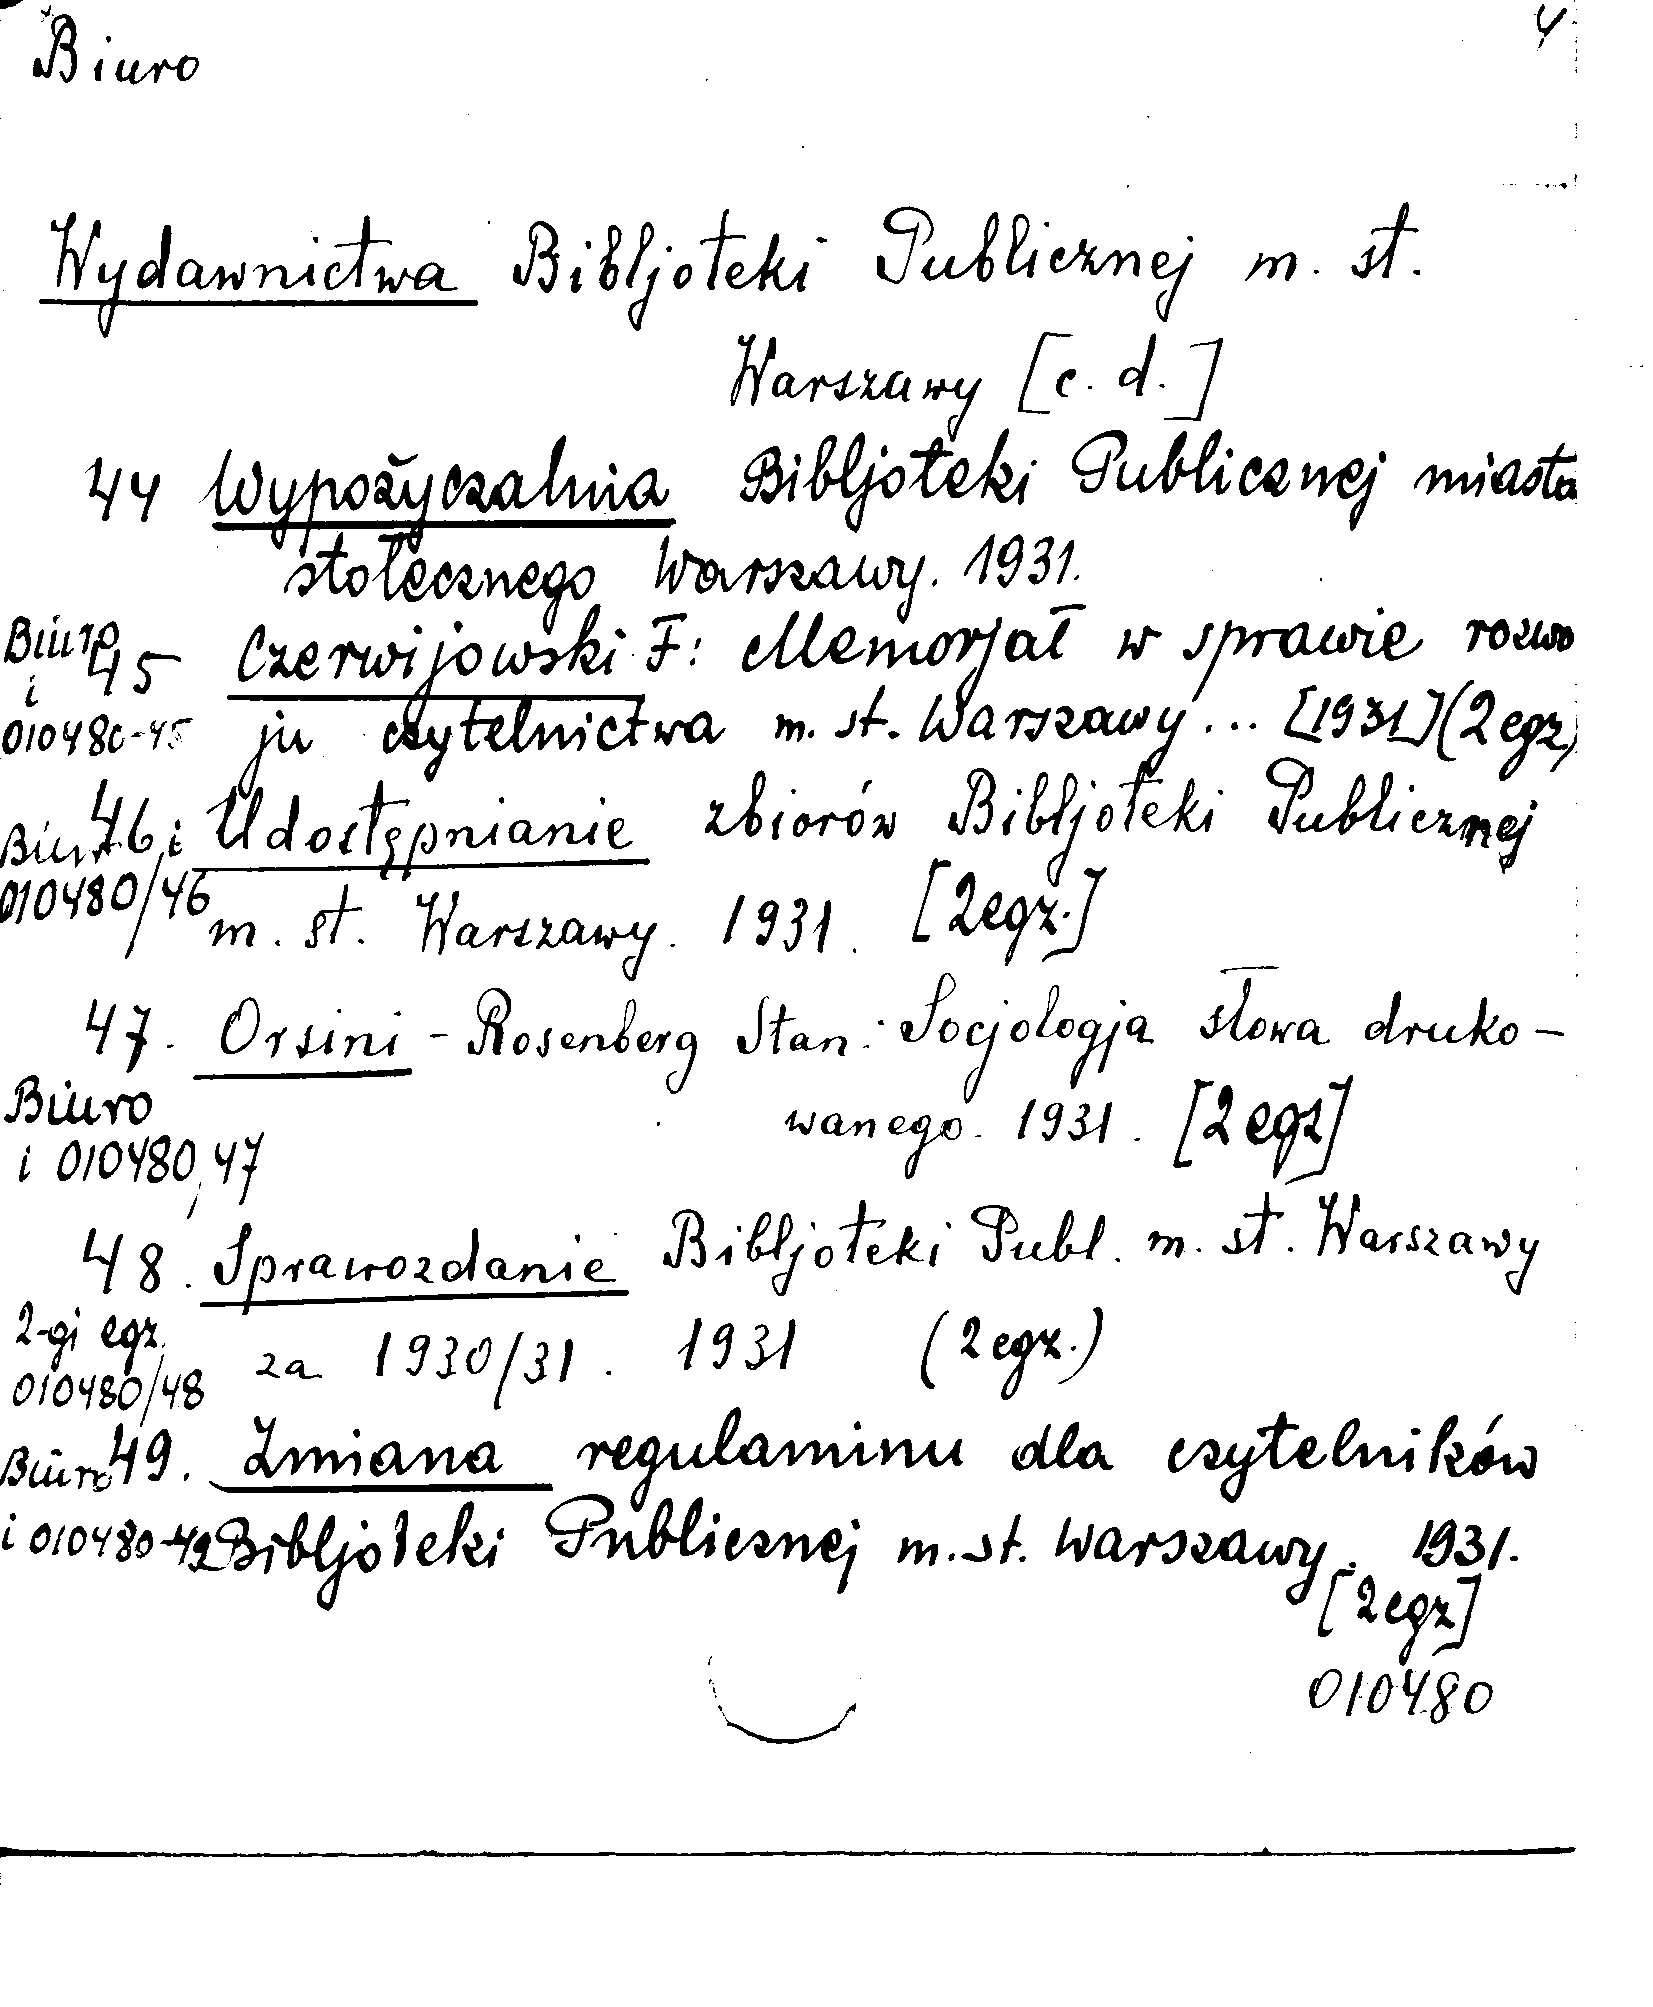 Biuro 4
Wydawnictwa Bibljoteki Publicznej m. st.
Warszawy [c. d.]
44 Wypożyczalnia Bibljoteki Publicznej miasta
stołecznego Warszawy. 1931.
Biuro 45 Czerwijowski F: Memorjał w sprawie rozwo
i
010480-45 ju czytelnictwa m. st. Warszawy... [1931] (2 egz)
Biuro 46 i Udostępnianie zbiorów Bibljoteki Publicznej
010480/46 m. st. Warszawy. 1931. [2 egz.]
47. Orsini - Rosenberg Stan: Socjologja słowa druko-
Biuro wanego. 1931. [2 egz]
i 010480,47
48. Sprawozdanie Bibljoteki Publ. m. st. Warszawy
2-gi egz. za 1930/31. 1931 (2 egz.)
010480/48
Biuro 49. Zmiana regulaminu dla czytelników
i 010480-49 Bibljoteki Publicznej m. st. Warszawy. 1931.
[2 egz]
010480